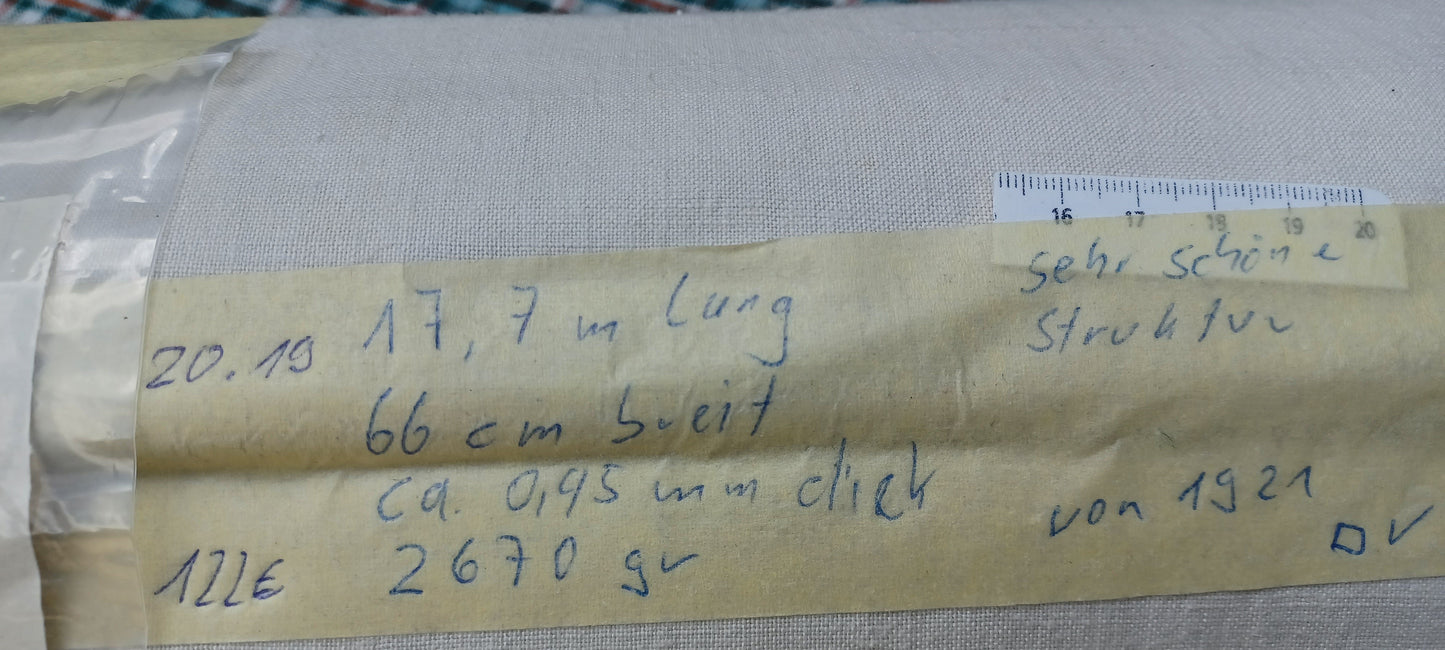 16 17 18 19 20
sehr schöne
Struktur
20.19
17,7 m lang
66 cm breit
ca. 0,45 mm dick
von 1921
122€
2670 gr